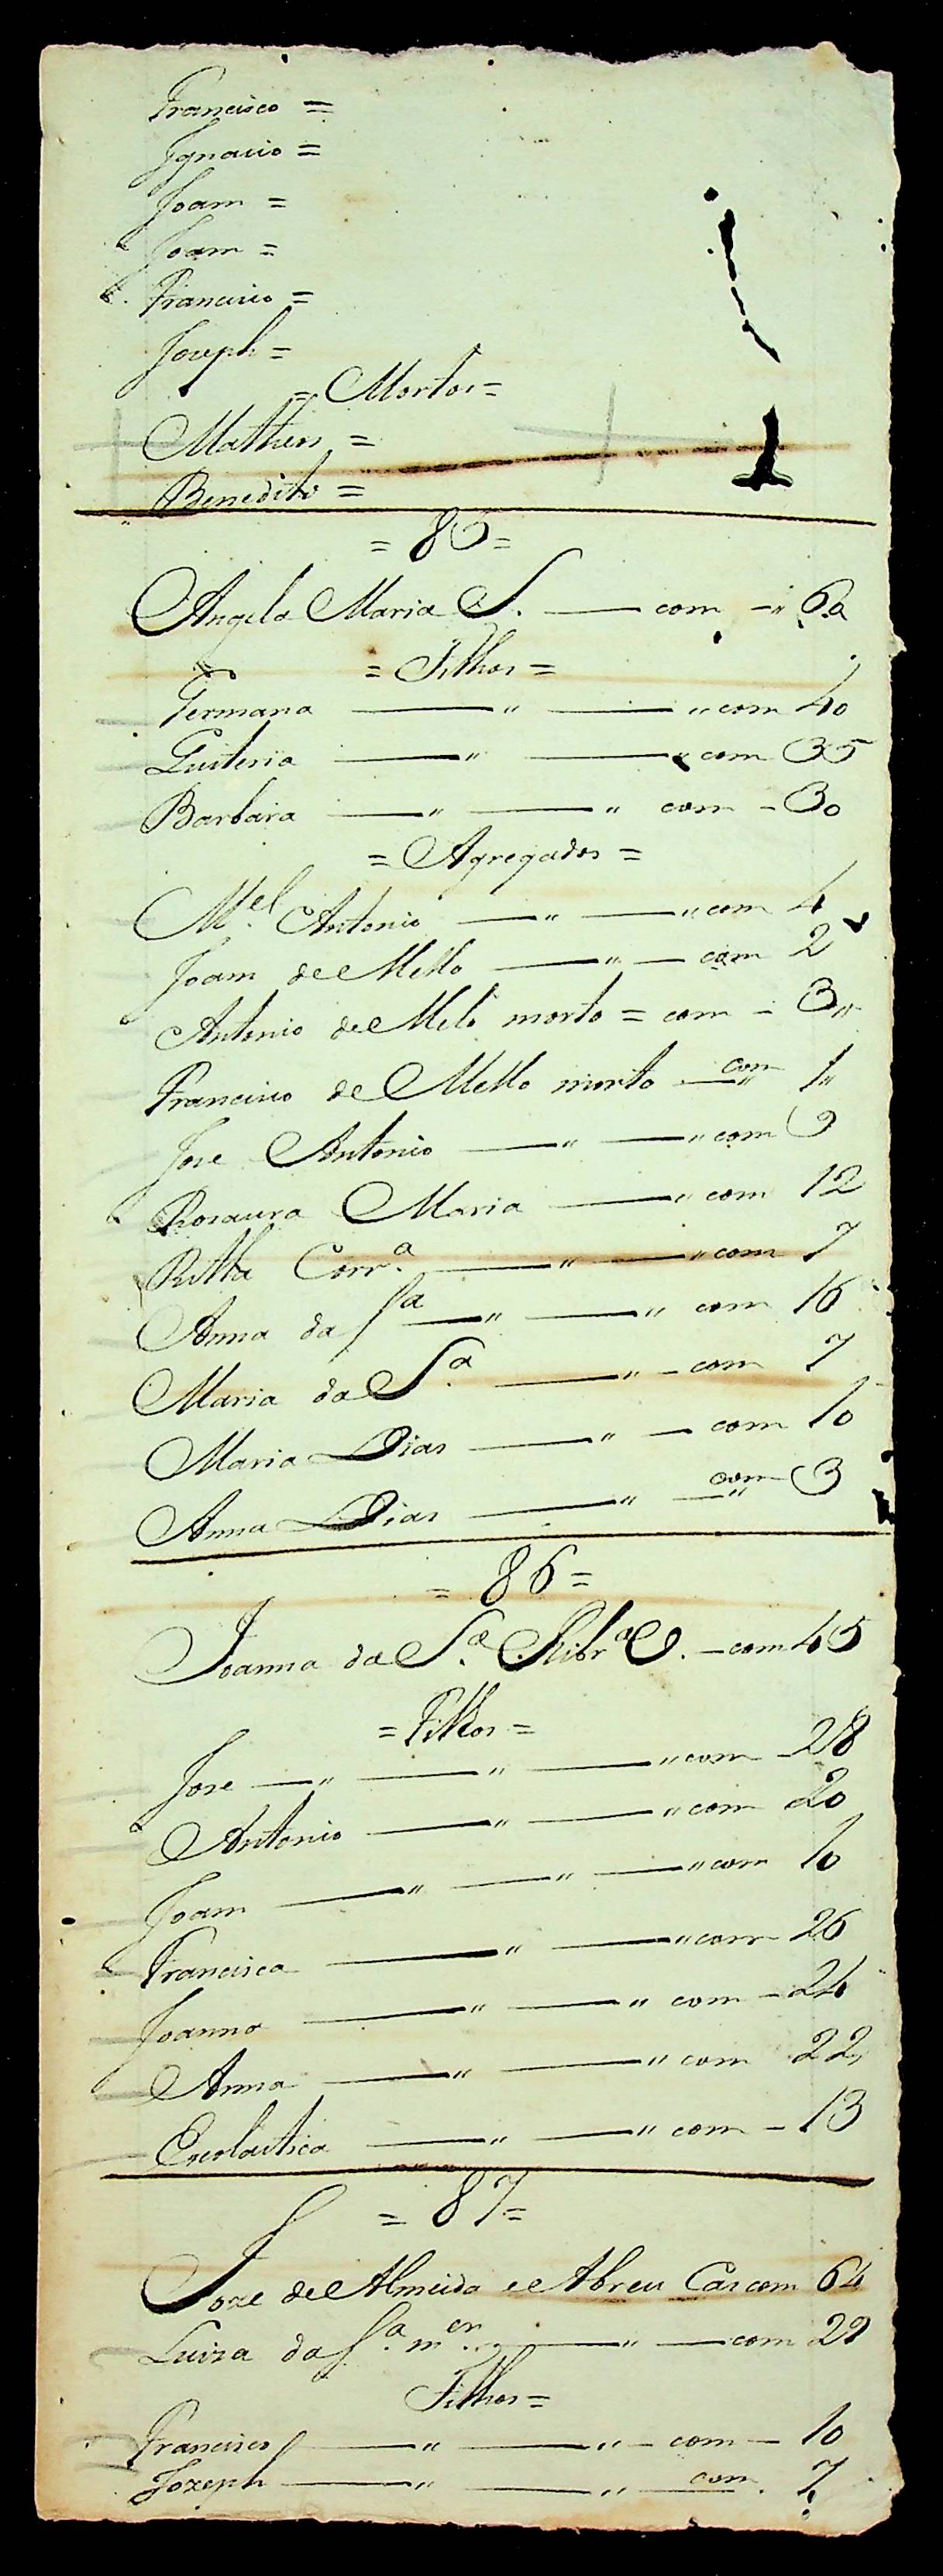 Francisco =
Ignacio =
Joam =
Joam =
Francisco =
Joseph =
= Mortos =
Matheus =
Benedito =
= 85 =
Angela Maria S. — com — 60
= Filhos =
Germana — " — " com 40
Quiteria — " — " com 35
Barbara — " — " com - 30
= Agregados =
M.el Antonio — " — " com 4
Joam de Mello — " — com 2
Antonio de Melo morto = com - 3"
Francisco de Mello morto — com 1"
Jose Antonio — " — " com 9
Rosaura Maria — " com 12
Ritha Corr.a — " — " com 7
Anna da S.a — " — " com 16
Maria da S.a — " — com 7
Maria Dias — " — com 10
Anna Dias — " — com 3
= 86 =
Joanna da S.a Ribr.a V. — com 45
= Filhos =
Jose — " — " — " com 28
Antonio — " — " com 20
Joam — " — " — " com 10
Francisca — " — " com 26
Joanna — " — " com - 24
Anna — " — " com 22
Escolastica — " — " com - 13
= 87 =
Joze de Almeida e Abreu Cas com 64
Luiza da S.a m.er — " — com 29
Filhos =
Francisco — " — " - com - 10
Jozeph — " — " — com . 7